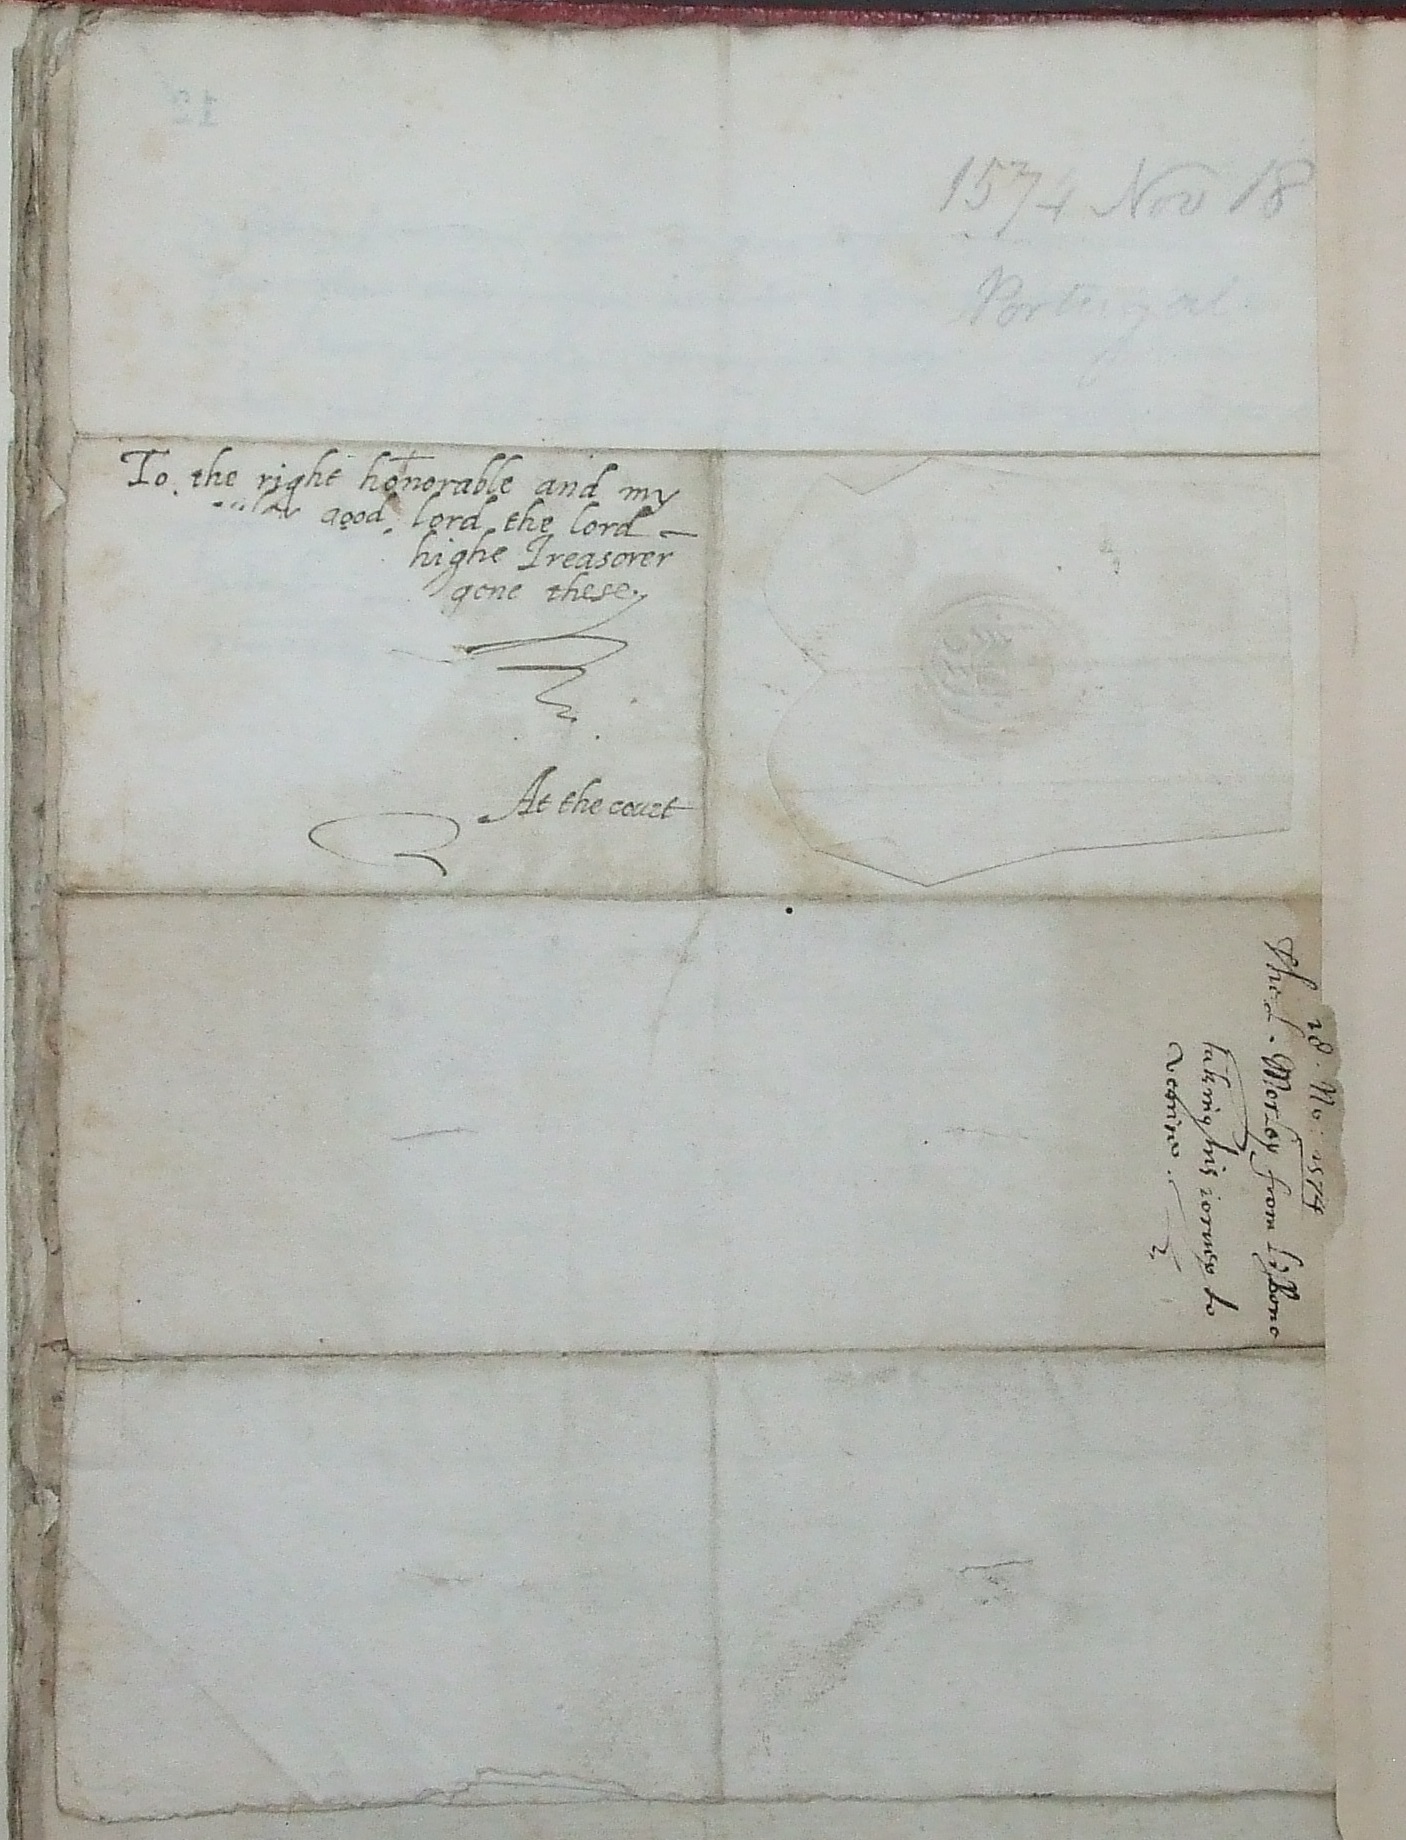 1574 Nov 18
Portugal
To the right honorable and my
good lord the lord
highe Treasorer
geue these
At the court
18. No. 1574
The L. Morley from Lysbone
taking his iorney to